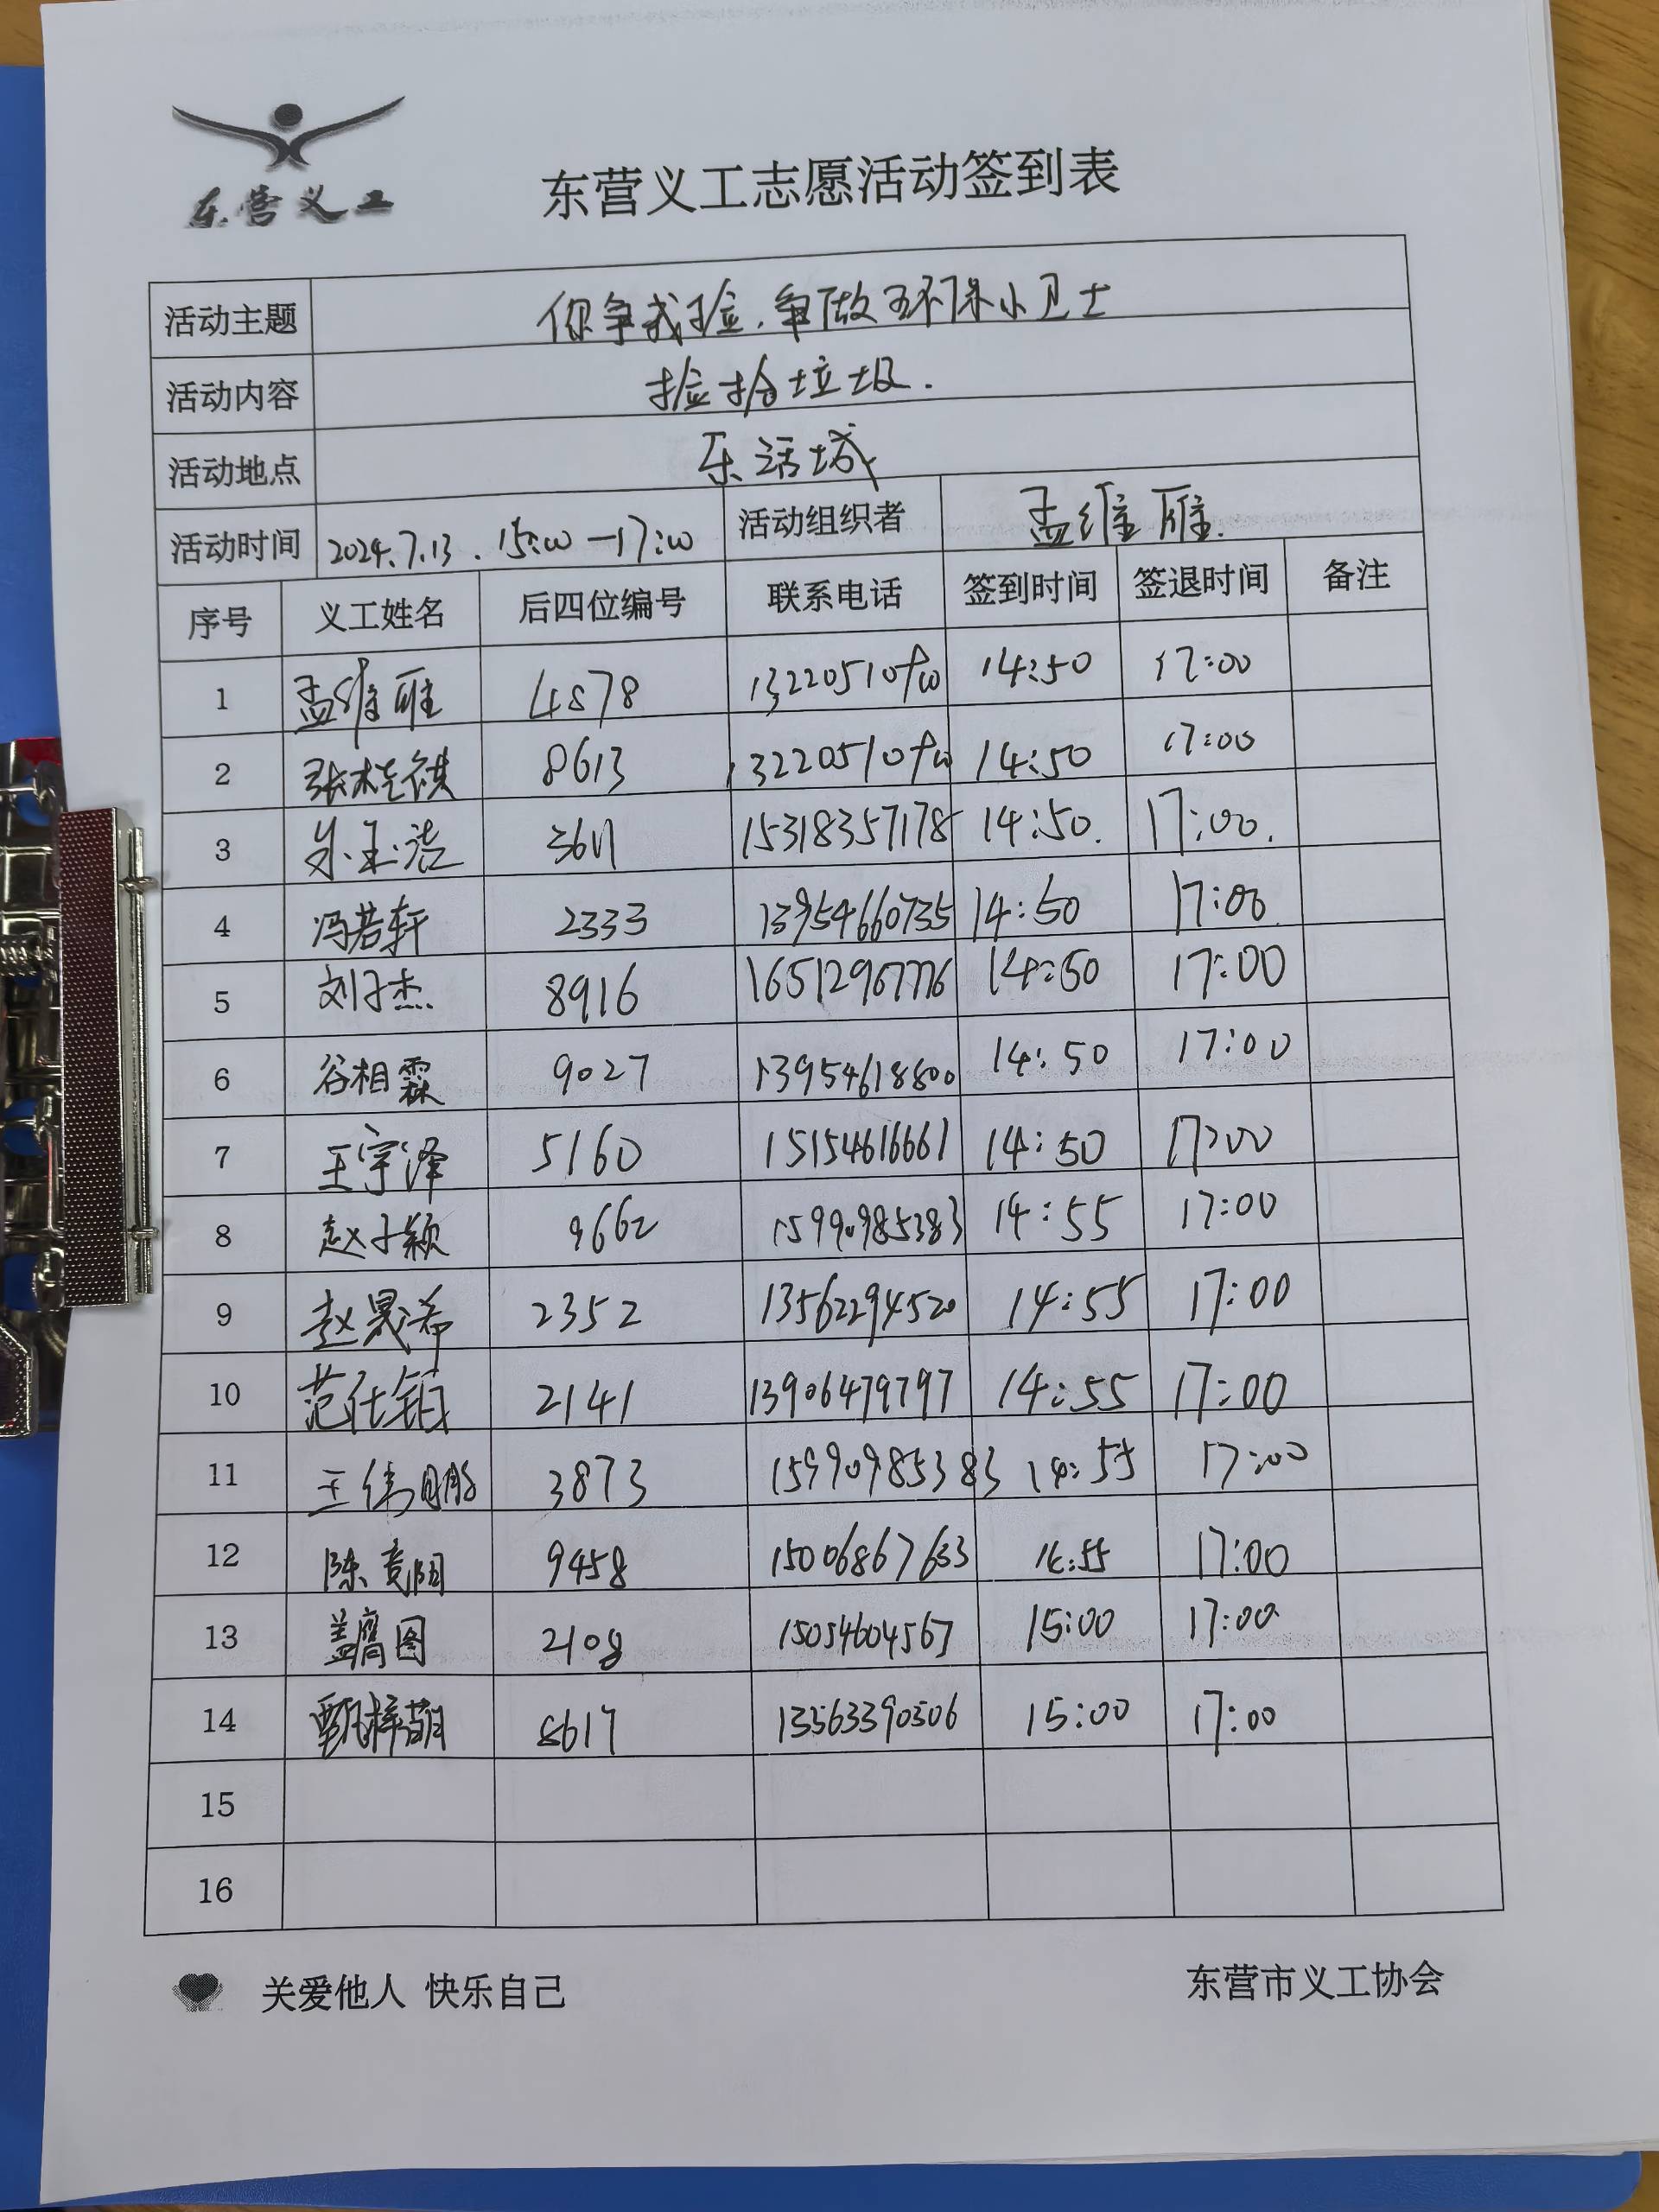 东营义工
东营义工志愿活动签到表
活动主题 你争我捡,争做环保小卫士
活动内容 捡拾垃圾.
活动地点 乐活城
活动时间 2024.7.13. 15:00—17:00 活动组织者 孟维雁.
序号 义工姓名 后四位编号 联系电话 签到时间 签退时间 备注
1 孟维雁 4878 14:50 17:00
2 8613 14:50 17:00
3 15318357178 14:50. 17:00.
4 冯若轩 2333 13954660735 14:50 17:00
5 刘子杰 8916 16512967776 14:50 17:00
6 谷相霖 9027 13954618800 14:50 17:00
7 王宇泽 5160 15154616661 14:50 17:00
8 赵子颖 9662 15990985383 14:55 17:00
9 赵晟希 2352 13562294520 14:55 17:00
10 范仕钧 2141 13906479797 14:55 17:00
11 3873 15990985383 14:55 17:00
12 陈竞阳 9458 15006867633 14:55 17:00
13 盖鹰图 2108 15054604567 15:00 17:00
14 甄梓萌 8617 13563390506 15:00 17:00
15
16
关爱他人 快乐自己 东营市义工协会